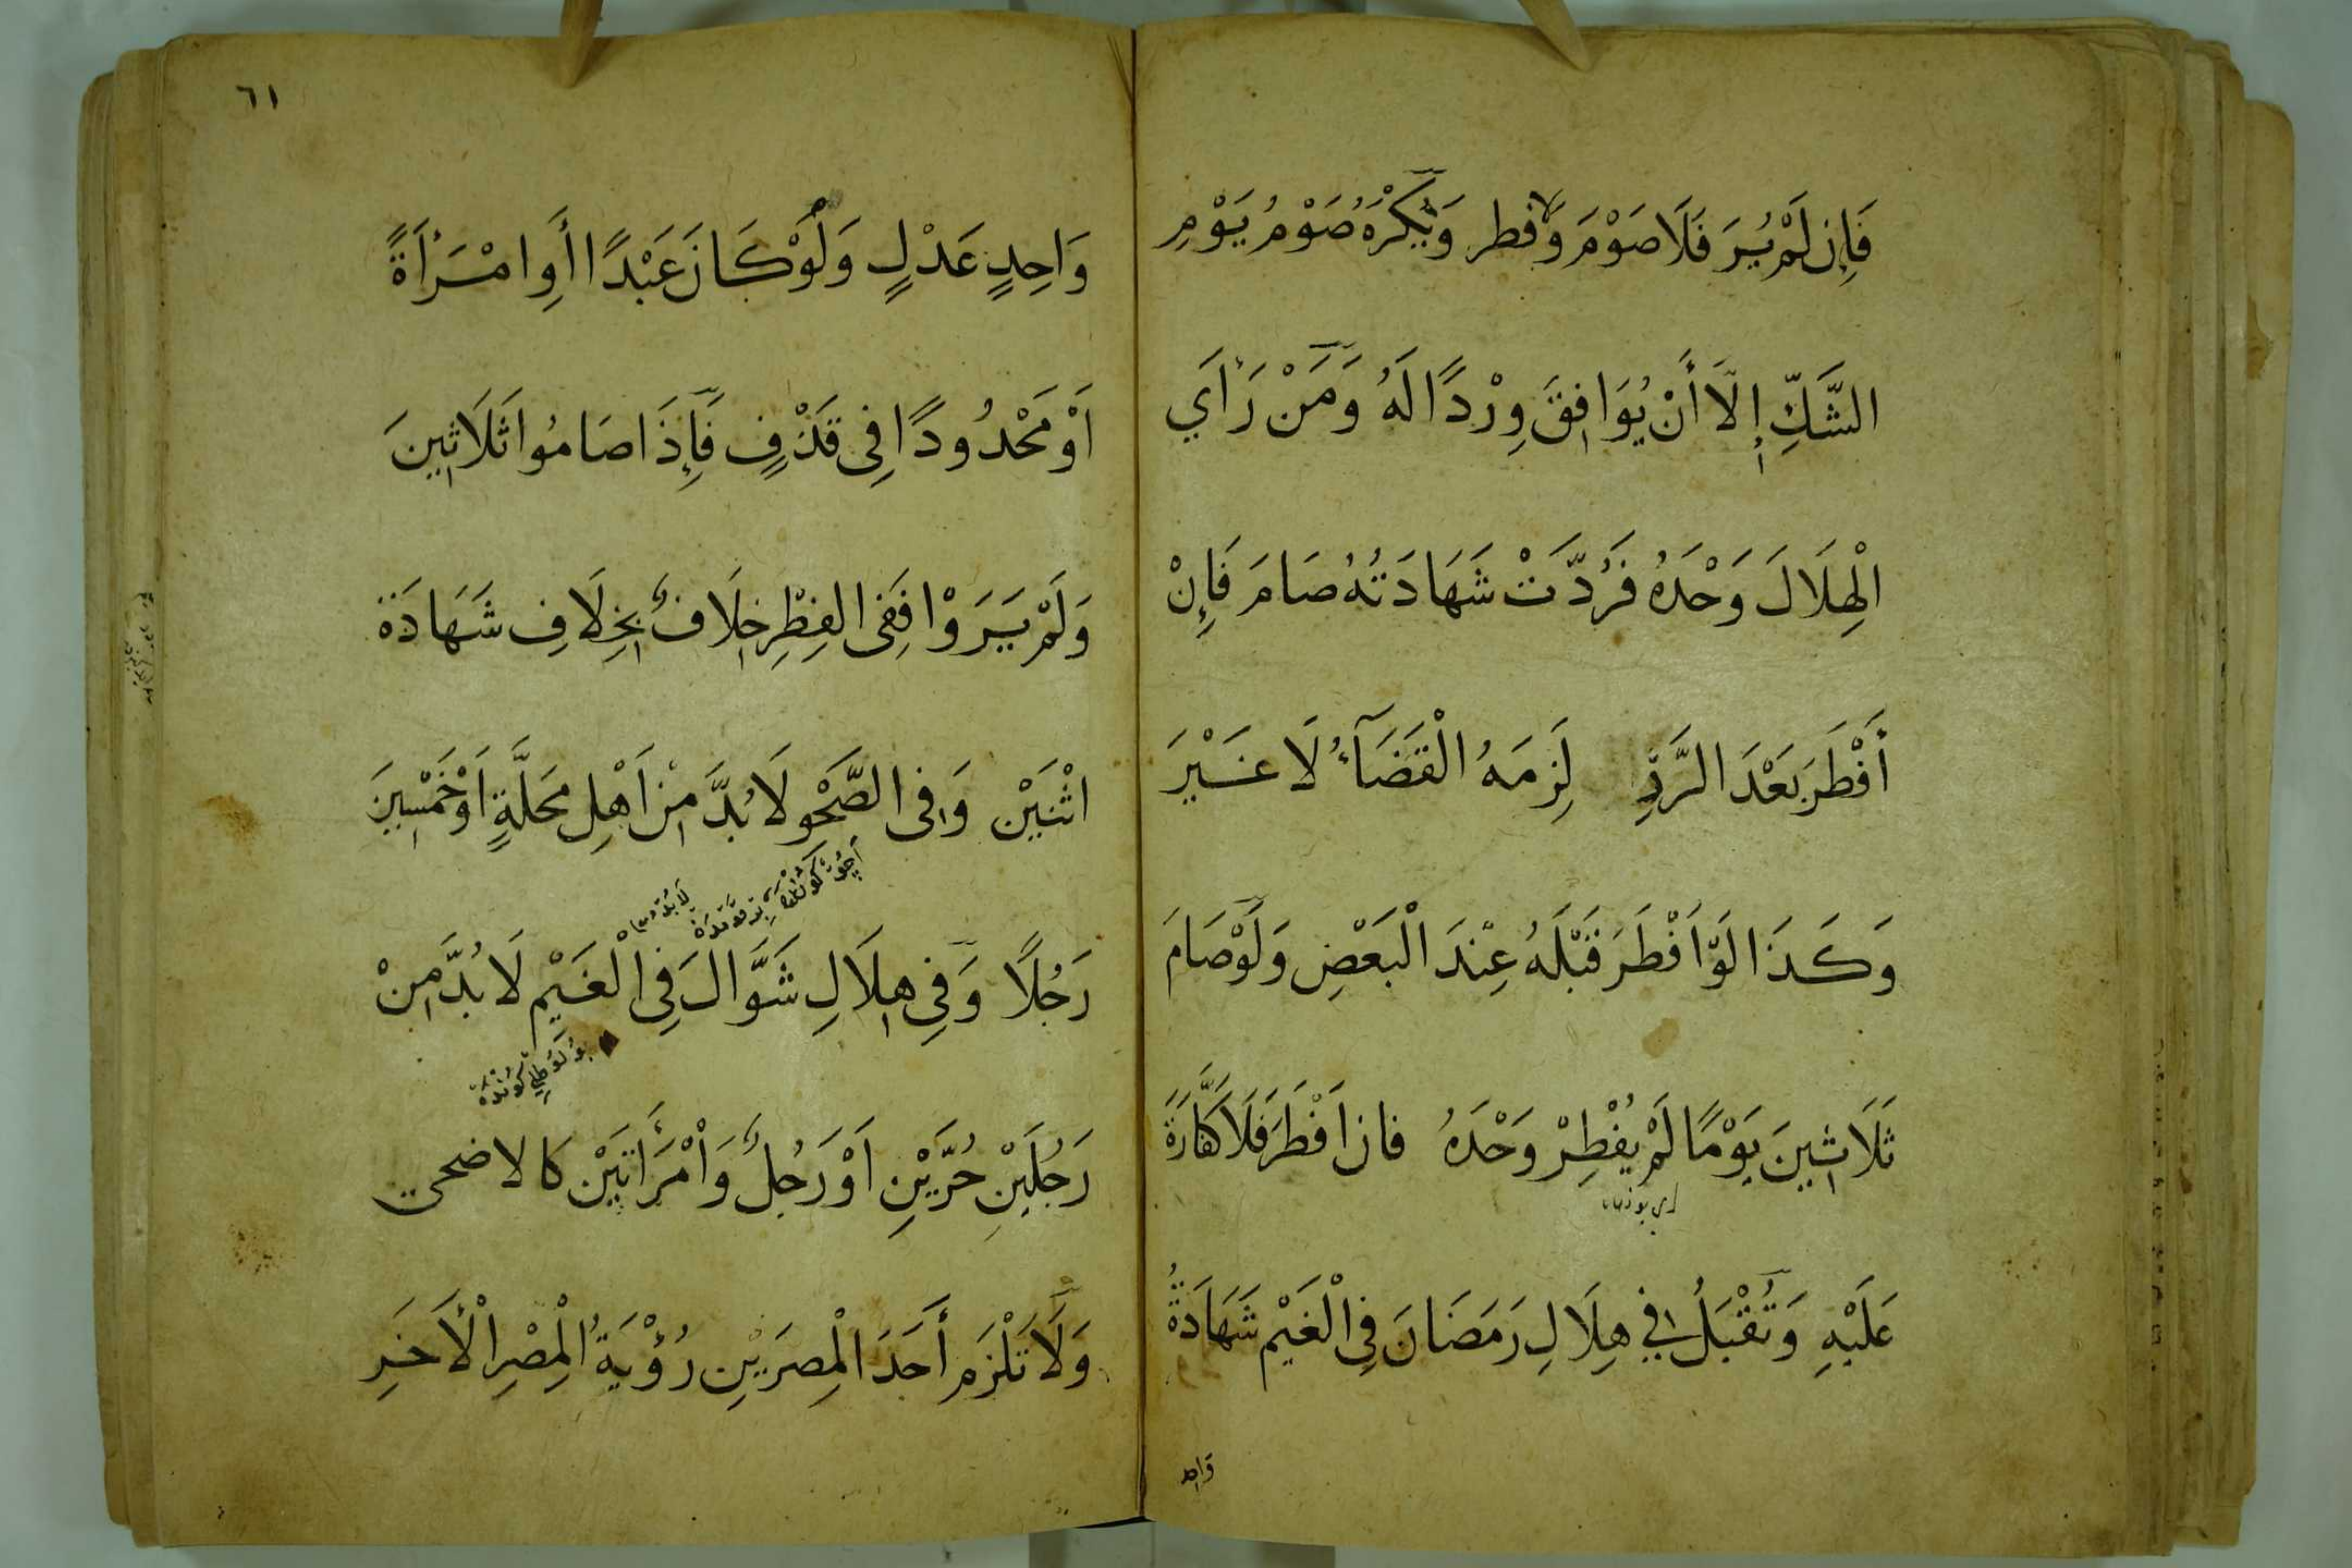 فَإِن لَمْ يُرَ فَلَا صَوْمَ وَلَا فطر وَيُكْرَهُ صَوْمُ يَوْمِ
الشَّكِّ إِلَّا أَنْ يُوَافِقَ وِرْدًا لَهُ وَمَنْ رَأَي
الْهِلَالَ وَحْدَهُ فَرُدَّتْ شَهَادَتُهُ صَامَ فَإِنْ
أَفْطَرَ بَعْدَ الرَّدِّ لَزِمَهُ الْقَضَآءُ لَا غَيْرَ
وَكَذَا لَوْ اَفْطَرَ قَبْلَهُ عِنْدَ الْبَعْضِ وَلَوْ صَامَ
ثَلَاثِينَ يَوْمًا لَمْ يُفْطِرْ وَحْدَهُ فان اَفْطَرَ فَلَا كَفَّارَةَ
عَلَيْهِ وَتُقْبَلُ فِي هِلَالِ رَمَضَانَ فِي الْغَيْمِ شَهَادَةُ
وَاحِد
٦١
وَاحِدٍ عَدْلٍ وَلَوْ كَانَ عَبْدًا أَوِ امْرَأَةً
اَوْ مَحْدُودًا فِي قَذْفٍ فَإِذَا صَامُوا ثَلَاثِينَ
وَلَمْ يَرَوْا فَفِي الفِطْرِ خِلَافٌ بِخِلَافِ شَهَادَة
اثْنَيْن وَفِى الصَّحْوِ لَا بُدَّ مِنْ اَهْلِ مَحَلَّةٍ اَوْ خَمْسِينَ
رَجُلًا وَفِي هِلَالِ شَوَّالَ فِي الْغَيْمِ لَا بُدَّ مِنْ
رَجُلَيْنِ حُرَّيْنِ اَوْ رَجُلٌ وَاْمْرَأَتَيْن كالاضحى
وَلَا تَلْزَم أَحَدَ الْمِصرَيْنِ رُؤْيَةُ الْمِصْرِ الْأَخَرِ